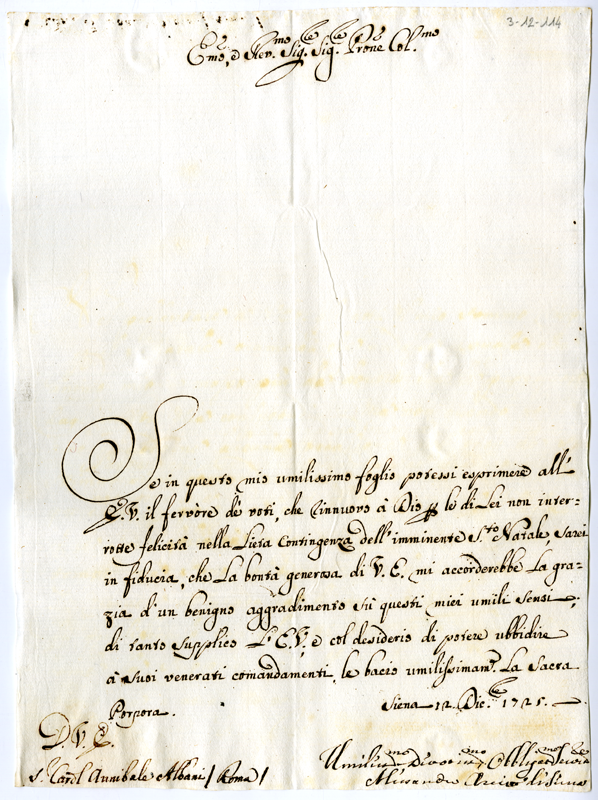 3-12-114
E.mo, e Rev.mo Sig.re Sig.re Prone Col.mo
Se in questo mio umilissimo foglio potessi esprimere all'
E.V. il fervore de' voti, che rinnuovo à Dio per le di Lei non inter-
rotte felicità nella lieta Contingenza dell'imminente S.to Natale, sarei
in fiducia, che La bontà generosa di V.E. mi accorderebbe La gra-
zia d'un benigno aggradimento sù questi miei umili sensi;
di tanto supplico L'E.V., e col desiderio di potere ubbidire
à suoi venerati comandamenti, le bacio umilissimam.te La Sacra
Porpora. Siena 12. Dic.re 1725.
D.V.E.
S.r Card.l Annibale Albani / Roma /
Umiliss.mo Divotiss.mo Obligat.mo
Alessandro Arciv.o di Siena